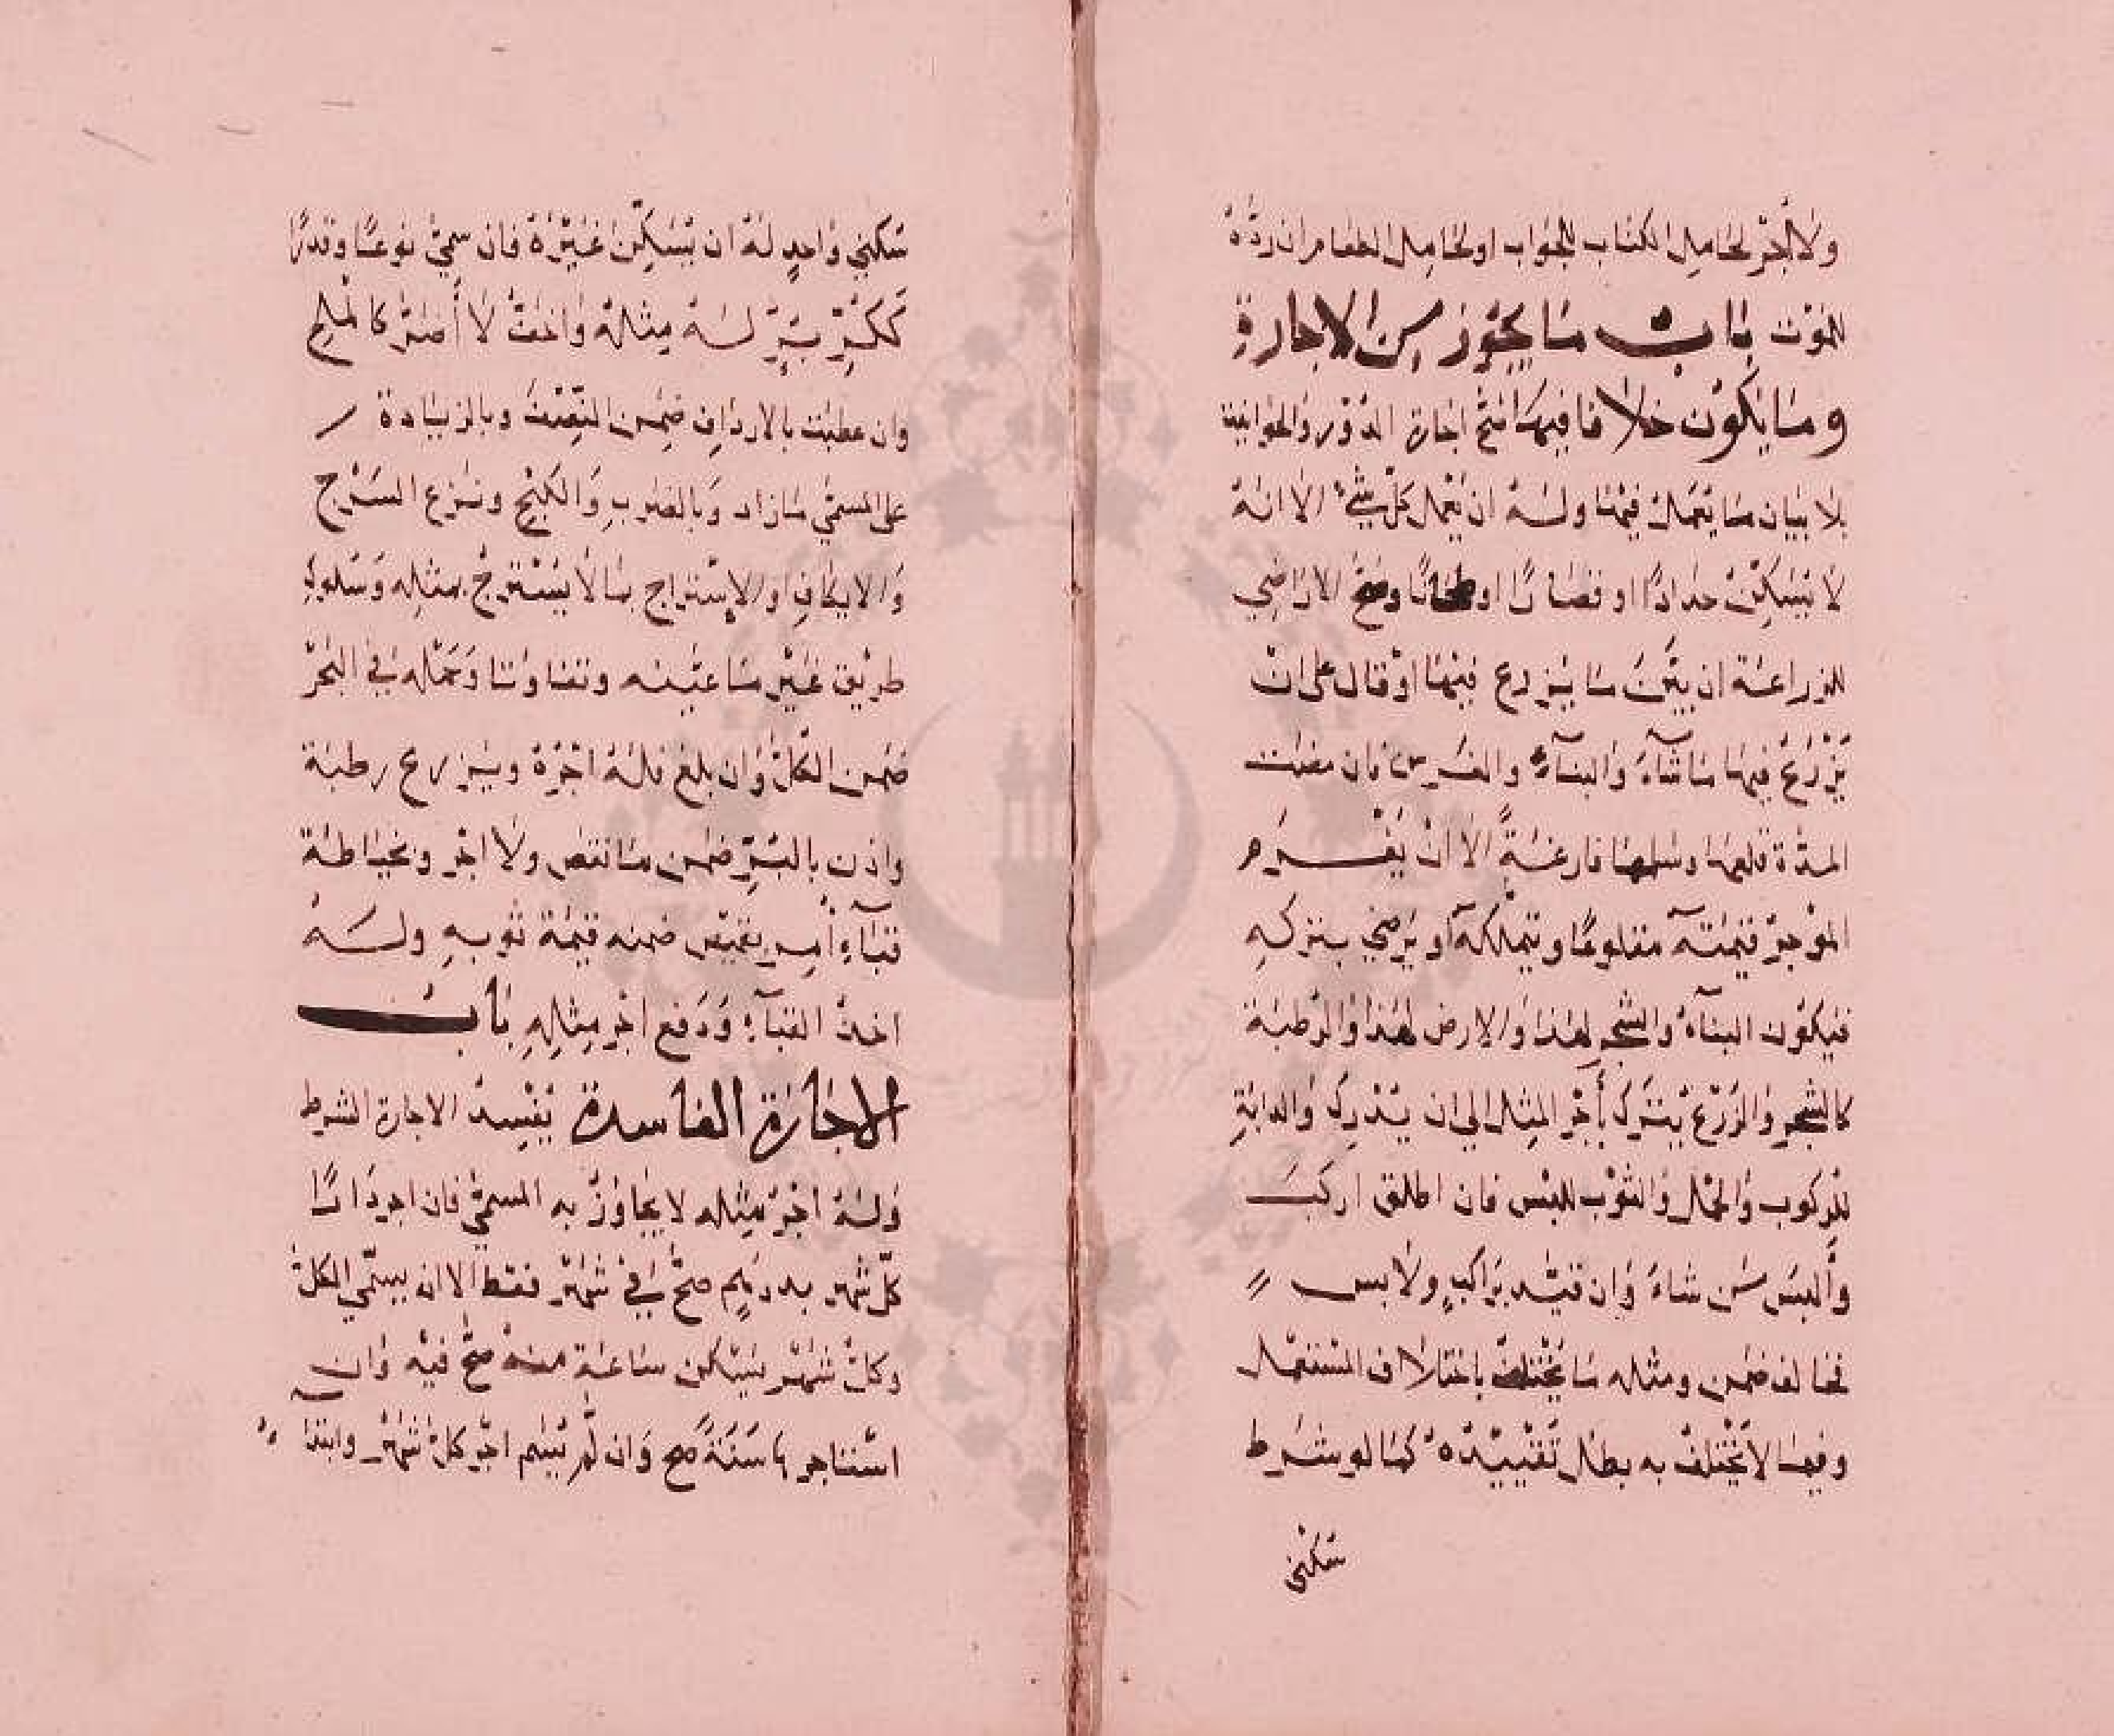 ولا أجر لحامل الكتاب للجواب او لحامل الطعام ان رده
للموت باب ما يجوز من الاجارة
وما يكون خلافا فيها صح اجارة الدور والحوانيت
بلا بيان ما يعمل فيها وله ان يعمل كل شيء الا انه
لا يسكن حدادا او قصارا او طحانا وصح الاراضي
للزراعة ان بين ما يزرع فيها او قال على ان
يزرع فيها ما شآء والبنآء والغرس فان مضت
المدة قلعها وسلمها فارغة الا ان يغرم
الموجر قيمته مقلوعا ويتملكه او يرضى بتركه
فيكون البنآء والشجر لهذا والارض لهذا والرطبة
كالشجر والزرع يترك بأجر المثل الى ان يدرك والدابة
للركوب والحمل والثوب للبس فان اطلق اركب
وألبس من شاء وان قيد براكب ولابس
فخالف ضمن ومثله ما يختلف باختلاف المستعمل
وفيما لا يختلف به بطل تقييده كما لو شرط
سكنى
سكنى واحد له ان يسكن غيره فان سمى نوعا وقدرا
ككر بر له مثله واخف لا أضر كالملح
وان عطبت بالارداف ضمن النصف وبالزيادة
على المسمى ما زاد وبالضرب والكبح ونزع السرج
والايكاف او الاسراج بما لا يسرج بمثله وسلوك
طريق غير ما عينه وتفاوتا وحمله في البحر
ضمن الكل وان بلغ فله اجره ويزرع رطبة
واذن بالبر ضمن ما نقص ولا اجر وبخياطة
قبآء أمر بقميص ضمنه قيمة ثوبه وله
اخذ القبآء ودفع اجر مثله باب
الاجارة الفاسدة يفسد الاجارة الشرط
وله اجر مثله لا يجاوز به المسمى فان اجر دارا
كل شهر بدرهم صح في شهر فقط الا ان يسمى الكل
وكل شهر سكن ساعة منه صح فيه وان
استاجرها سنة صح وان لم يسم اجر كل شهر وابتدا